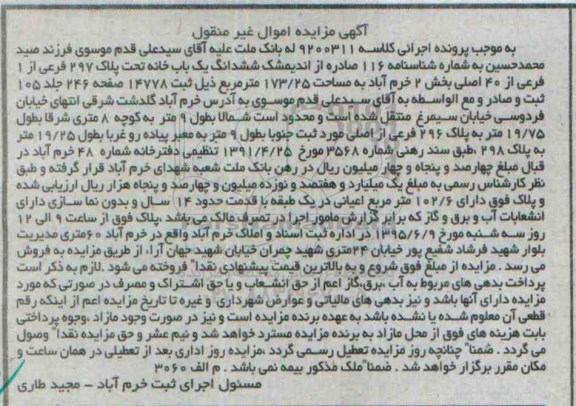 آگهی مزایده اموال غیر منقول
به موجب پرونده اجرائی کلاسه ۹۲۰۰۳۱۱ له بانک ملت علیه آقای سیدعلی قدم موسوی فرزند صید
محمدحسین به شماره شناسنامه ۱۱۶ صادره از اندیمشک ششدانگ یک باب خانه تحت پلاک ۲۹۷ فرعی از ۱
فرعی از ۴۰ اصلی بخش ۲ خرم آباد به مساحت ۱۷۳/۲۵ مترمربع ذیل ثبت ۱۴۷۷۸ صفحه ۲۴۶ جلد ۱۰۵
ثبت و صادر و مع الواسطه به آقای سیدعلی قدم موسوی به آدرس خرم آباد گلدشت شرقی انتهای خیابان
فردوسی خیابان سیمرغ منتقل شده است و محدود است شمالا بطول ۹ متر به کوچه ۸ متری شرقا بطول
۱۹/۷۵ متر به پلاک ۲۹۶ فرعی از اصلی مورد ثبت جنوبا بطول ۹ متر به معبر پیاده رو غربا بطول ۱۹/۲۵ متر
به پلاک ۲۹۸ ،طبق سند رهنی شماره ۳۵۶۸ مورخ ۱۳۹۱/۴/۲۵ تنظیمی دفترخانه شماره ۴۸ خرم آباد در
قبال مبلغ چهارصد و پنجاه و چهار میلیون ریال در رهن بانک ملت شعبه شهدای خرم آباد قرار گرفته و طبق
نظر کارشناس رسمی به مبلغ یک میلیارد و هفتصد و نوزده میلیون و چهارصد و پنجاه هزار ریال ارزیابی شده
و پلاک فوق دارای ۱۰۲/۶ متر مربع اعیانی در یک طبقه با قدمت حدود ۱۴ سال و بدون نما سازی دارای
انشعابات آب و برق و گاز که برابر گزارش مامور اجرا در تصرف مالک می باشد .پلاک فوق از ساعت ۹ الی ۱۲
روز سه شنبه مورخ ۱۳۹۵/۶/۹ در اداره ثبت اسناد و املاک خرم آباد واقع در خرم آباد ۶۰متری مدیریت
بلوار شهید فرشاد شفیع پور خیابان ۲۴متری شهید چمران خیابان شهید جهان آرا، از طریق مزایده به فروش
می رسد . مزایده از مبلغ فوق شروع و به بالاترین قیمت پیشنهادی نقدا" فروخته می شود .لازم به ذکر است
پرداخت بدهی های مربوط به آب ،برق،گاز اعم از حق انشعاب و یا حق اشتراک و مصرف در صورتی که مورد
مزایده دارای آنها باشد و نیز بدهی های مالیاتی و عوارض شهرداری و غیره تا تاریخ مزایده اعم از اینکه رقم
قطعی آن معلوم شده یا نشده باشد به عهده برنده مزایده است و نیز در صورت وجود مازاد ،وجوه پرداختی
بابت هزینه های فوق از محل مازاد به برنده مزایده مسترد خواهد شد و نیم عشر و حق مزایده نقدا" وصول
می گردد . ضمنا" چنانچه روز مزایده تعطیل رسمی گردد ،مزایده روز اداری بعد از تعطیلی در همان ساعت و
مکان مقرر برگزار خواهد شد . ضمنا"ملک مذکور بیمه نمی باشد . م الف ۳۰۶۰
مسئول اجرای ثبت خرم آباد - مجید طاری